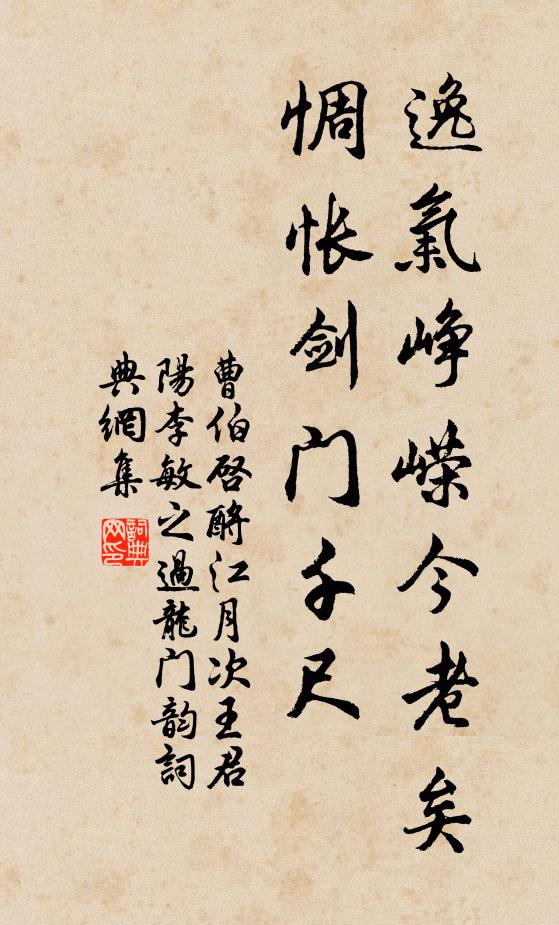 逸氣崢嶸今老矣
惆怅剑门千尺
曹伯啓酹江月次王君
陽李敏之過龍门韵詞
典網集
詞典
网印